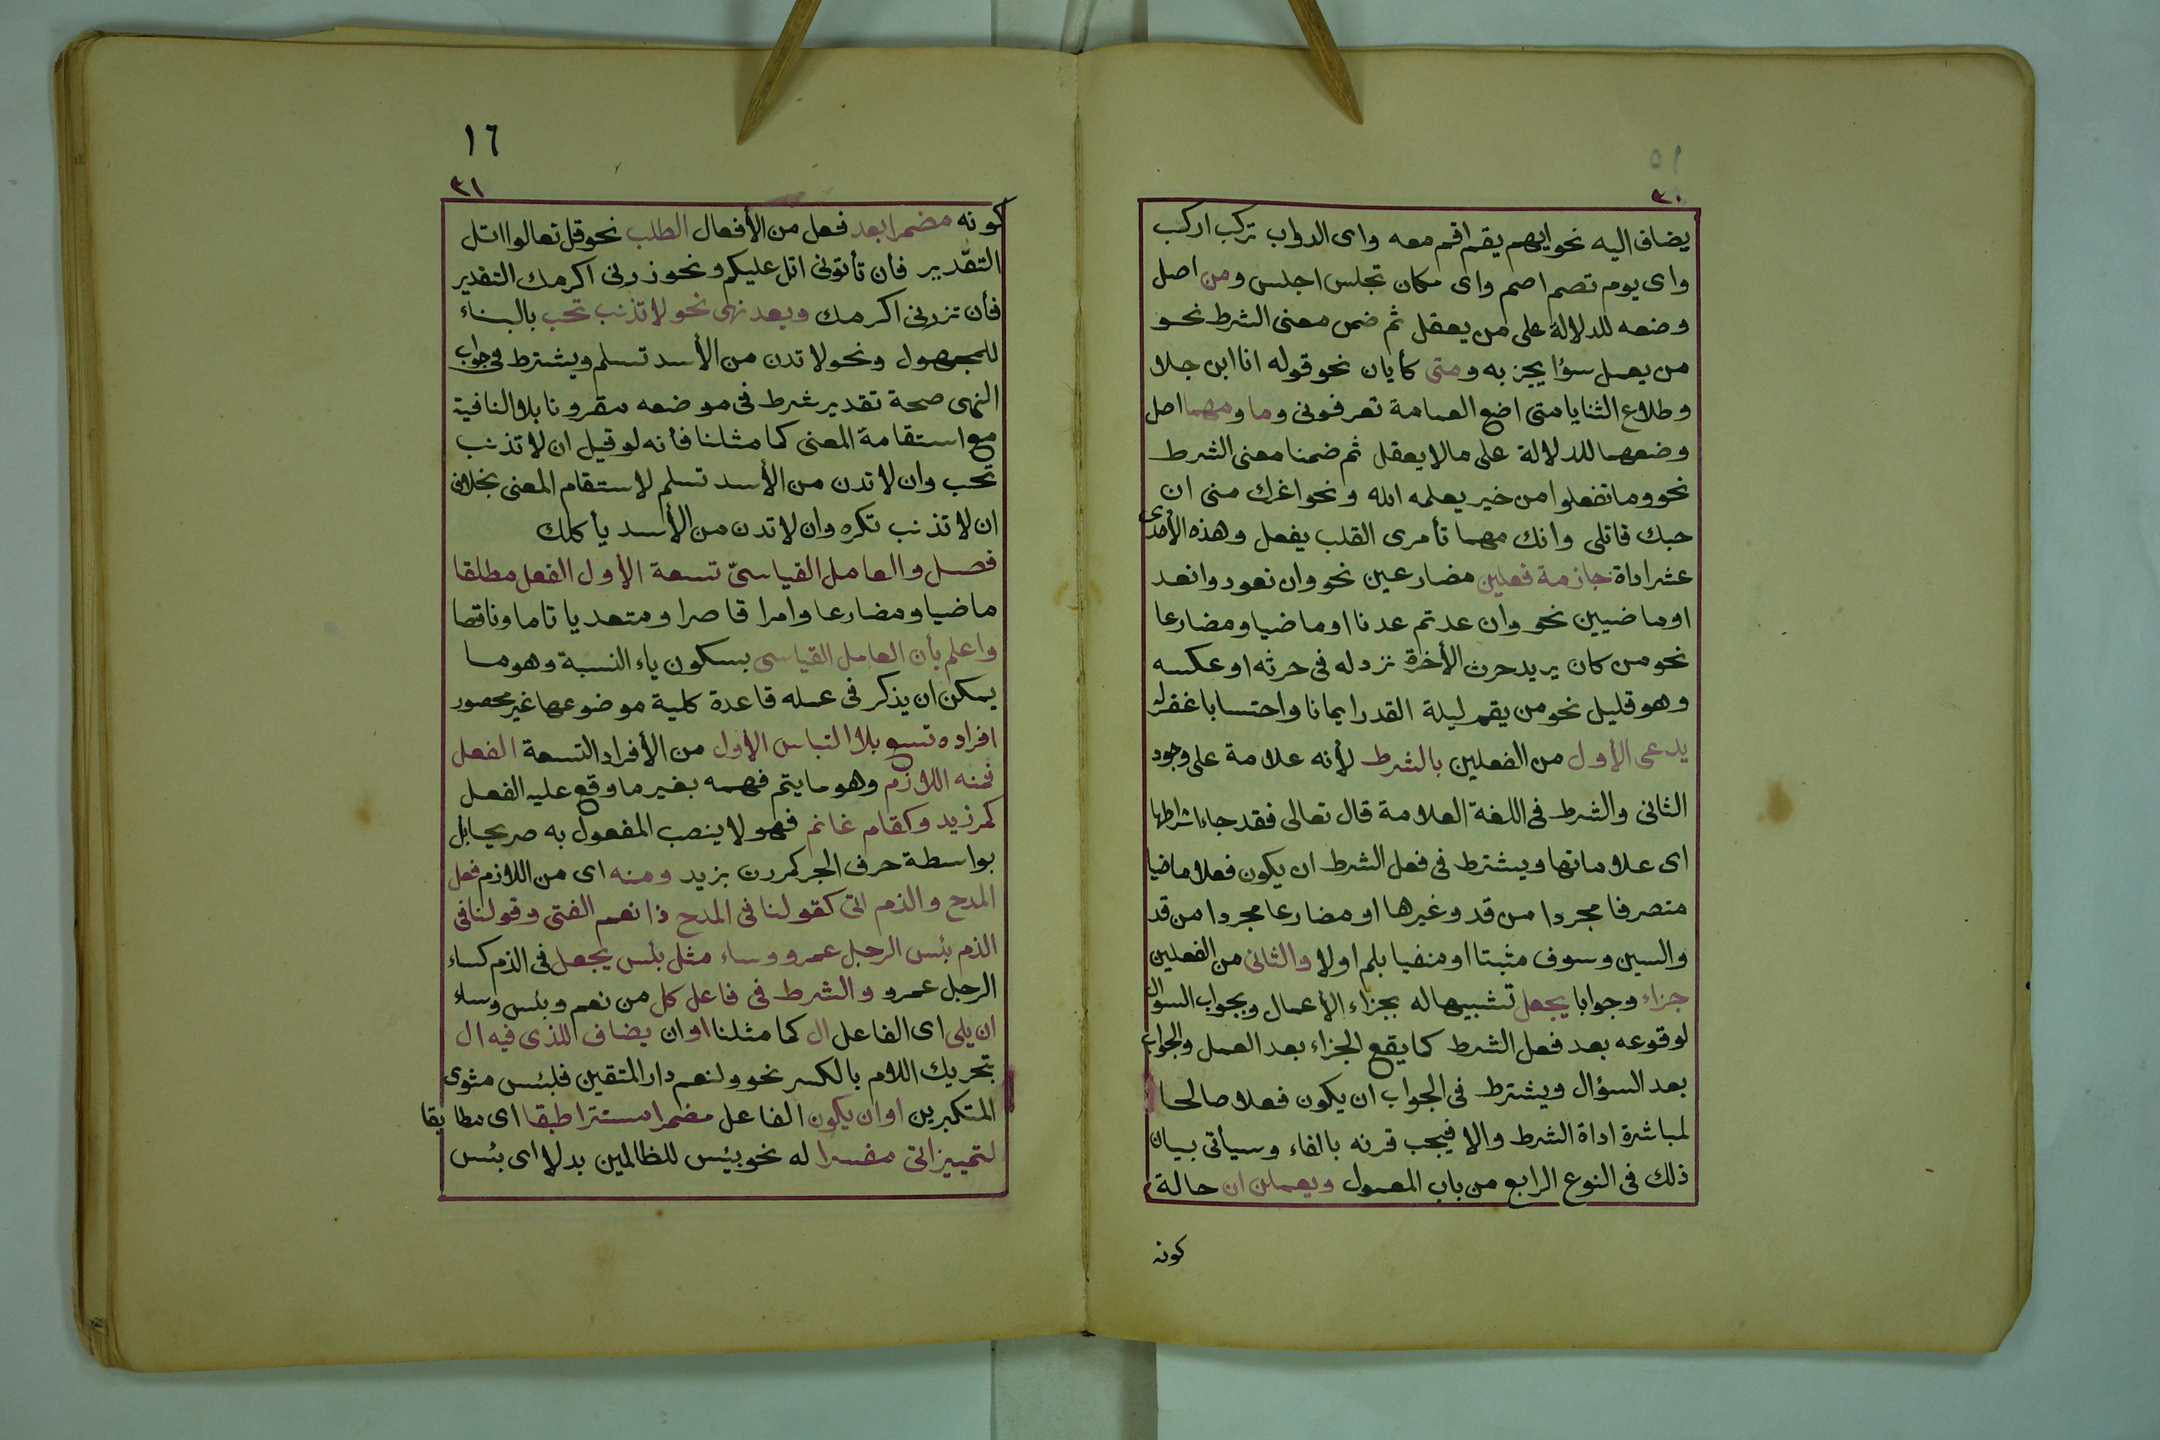 ١٥
٣٠
يضاف اليه نحو ايهم يقم اقم معه واى الدواب تركب اركب
واى يوم تصم اصم واى مكان تجلس اجلس ومن اصل
وضعه للدلالة على من يعقل ثم ضمن معنى الشرط نحو
من يعمل سؤا يجز به ومتى كأيان نحو قوله انا ابن جلا
وطلاع الثنايا متى اضع العمامة تعرفونى وما ومهما اصل
وضعهما للدلالة على مالا يعقل ثم ضمنا معنى الشرط
نحو وما تفعلوا من خير يعلمه الله ونحو اغرك منى ان
حبك قاتلى وانك مهما تأمرى القلب يفعل وهذه الأحدى
عشر اداة جازمة فعلين مضارعين نحو وان تعودوا نعد
او ماضيين نحو وان عدتم عدنا او ماضيا ومضارعا
نحو من كان يريد حرث الأخرة نزد له فى حرثه او عكسه
وهو قليل نحو من يقم ليلة القدر ايمانا واحتسابا غفرله
يدعى الأول من الفعلين بالشرط لأنه علامة على وجود
الثانى والشرط فى اللغة العلامة قال تعالى فقد جاء اشراطها
اى علاماتها ويشترط فى فعل الشرط ان يكون فعلا ماضيا
متصرفا مجردا من قد وغيرها او مضارعا مجردا من قد
والسين وسوف مثبتا او منفيا بلم اولا والثانى من الفعلين
جزاء وجوابا يجعل تشبيها له بجزاء الأعمال وبجواب السوال
لوقوعه بعد فعل الشرط كما يقع الجزاء بعد العمل والجواب
بعد السؤال ويشترط فى الجواب ان يكون فعلا صالحا
لمباشرة اداة الشرط والا فيجب قرنه بالفاء وسيأتى بيان
ذلك فى النوع الرابع من باب المعمول ويعملن ان حالة
كونه
١٦
٣١
كونه مضمرا بعد فعل من الأفعال الطلب نحو قل تعالوا اتل
التقدير فأن تأتونى اتل عليكم ونحو زرنى اكرمك التقدير
فأن تزرنى اكرمك وبعد نهى نحو لا تذنب تحب بالبناء
للمجهول ونحو لا تدن من الأسد تسلم ويشترط فى جواب
النهى صحة تقدير شرط فى موضعه مقرونا بلا النافية
مع استقامة المعنى كما مثلنا فأنه لو قيل ان لا تذنب
تحب وان لا تدن من الأسد تسلم لاستقام المعنى بخلاف
ان لا تذنب تكره وان لا تدن من الأسد يأكلك
فصل والعامل القياسىّ تسعة الأول الفعل مطلقا
ماضيا ومضارعا وامرا قاصرا ومتعديا تاما وناقصا
واعلم بأن العامل القياسى بسكون ياء النسبة وهو ما
يمكن ان يذكر فى عمله قاعدة كلية موضوعها غير محصور
افراده تسع بلا التباس الأول من الأفراد التسعة الفعل
فمنه اللازم وهو ما يتم فهمه بغير ما وقع عليه الفعل
كمر زيد وكقام غانم فهو لا ينصب المفعول به صريحا بل
بواسطة حرف الجر كمررن بزيد ومنه اى من اللازم فعل
المدح والذم اتى كقولنا فى المدح ذا نعم الفتى وقولنا فى
الذم بئس الرجل عمرو وساء مثل بئس يجعل فى الذم كساء
الرجل عمرو والشرط فى فاعل كل من نعم وبئس وساء
ان يلى اى الفاعل ال كما مثلنا او ان يضاف للذى فيه ال
بتحريك اللام بالكسر نحو ولنعم دار المتقين فلبئس مثوى
المتكبرين او ان يكون الفاعل مضمرا مستترا طبقا اى مطابقا
لتمييز اتى مفسرا له نحو بئس للظالمين بدلا اى بئس